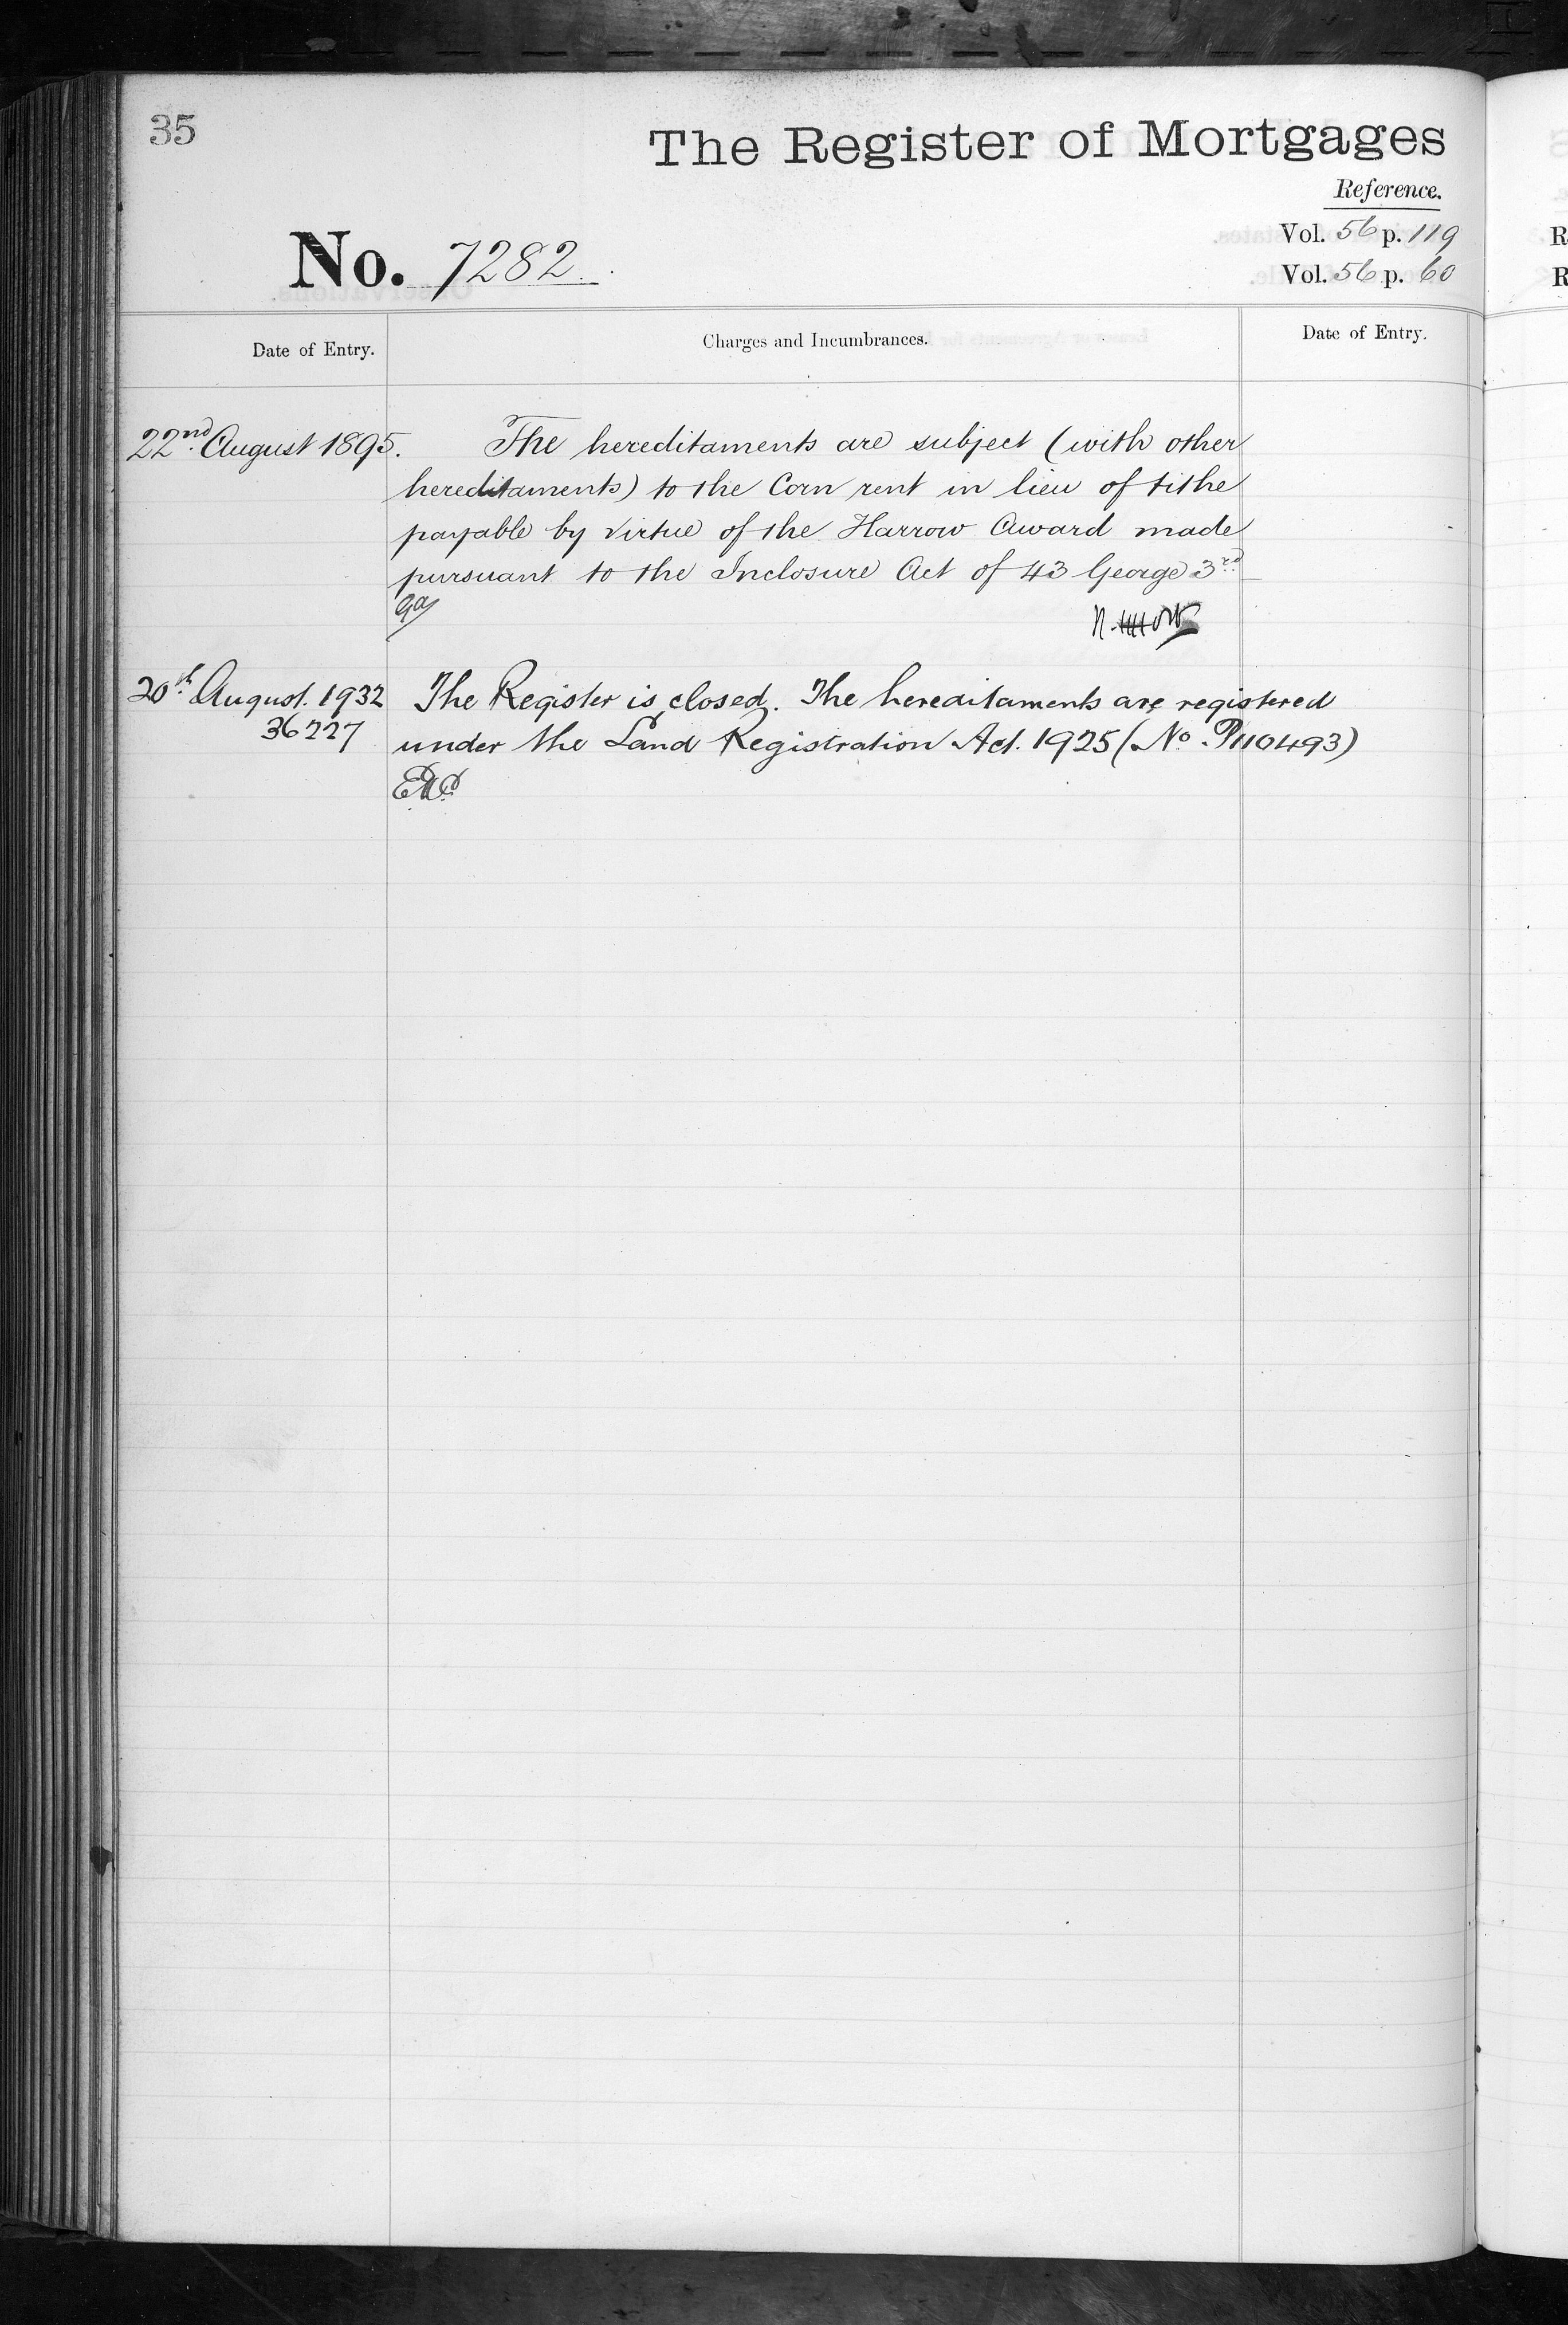 35
The Register of Mortgages
Reference.
Vol. 56 p. 119
No. 7282
Vol. 56 p. 60
Date of Entry.
Charges and Incumbrances.
Date of Entry.
22nd August 1895.
The hereditaments are subject (with other
hereditaments) to the Corn rent in lieu of tithe
payable by virtue of the Harrow Award made
pursuant to the Inclosure Act of 43 George 3rd
20th August. 1932
The Register is closed. The hereditaments are registered
36227
under the Land Registration Act. 1925 (No. P110493)
R
R